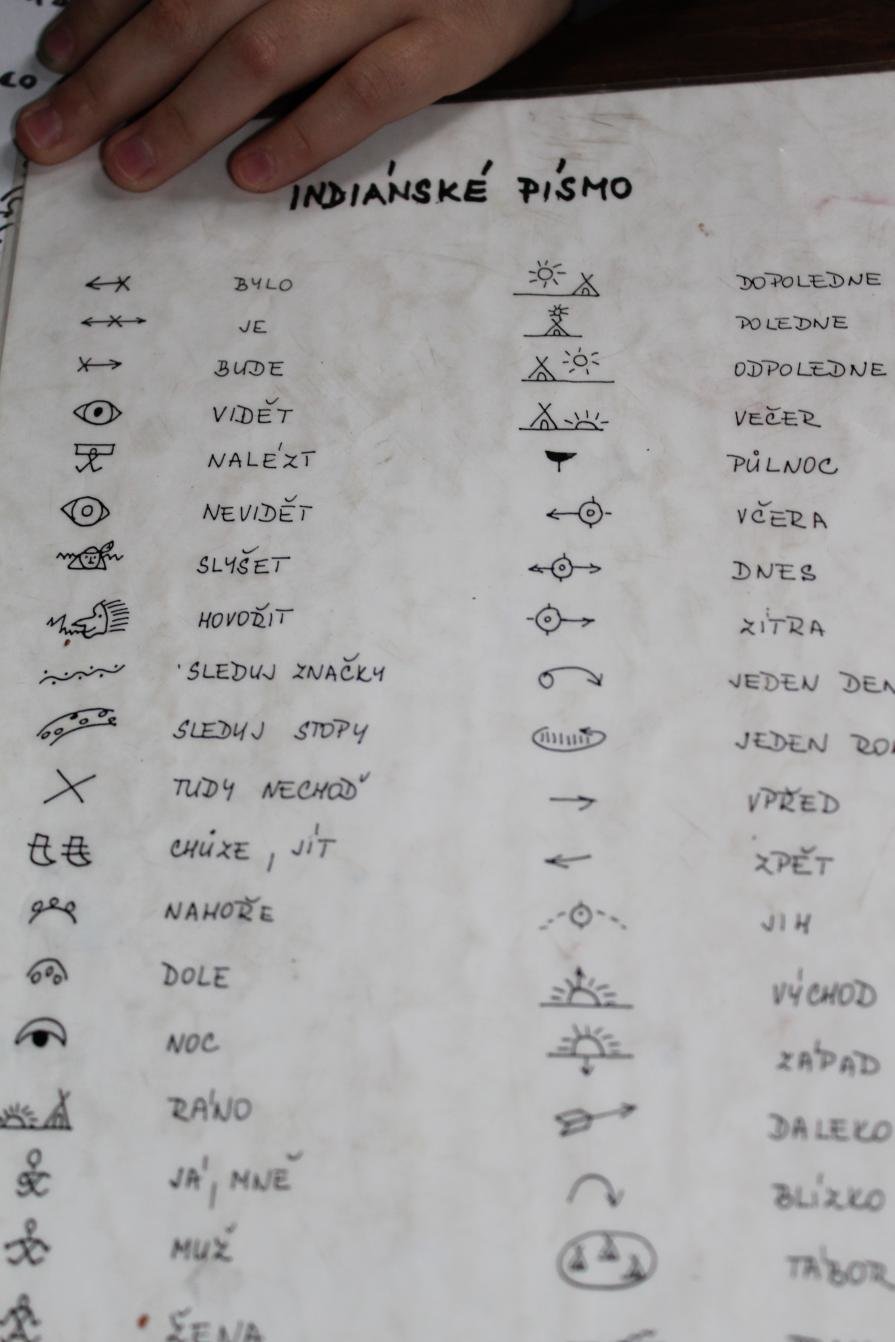 INDIÁNSKÉ PÍSMO
BYLO
JE
BUDE
VIDĚT
NALÉZT
NEVIDĚT
SLYŠET
HOVOŘIT
SLEDUJ ZNAČKY
SLEDUJ STOPY
TUDY NECHOĎ
CHŮZE, JÍT
NAHOŘE
DOLE
NOC
RÁNO
JÁ, MNĚ
MUŽ
ŽENA
DOPOLEDNE
POLEDNE
ODPOLEDNE
VEČER
PŮLNOC
VČERA
DNES
ZÍTRA
JEDEN DEN
JEDEN ROK
VPŘED
ZPĚT
JIH
VÝCHOD
ZÁPAD
DALEKO
BLÍZKO
TÁBOR